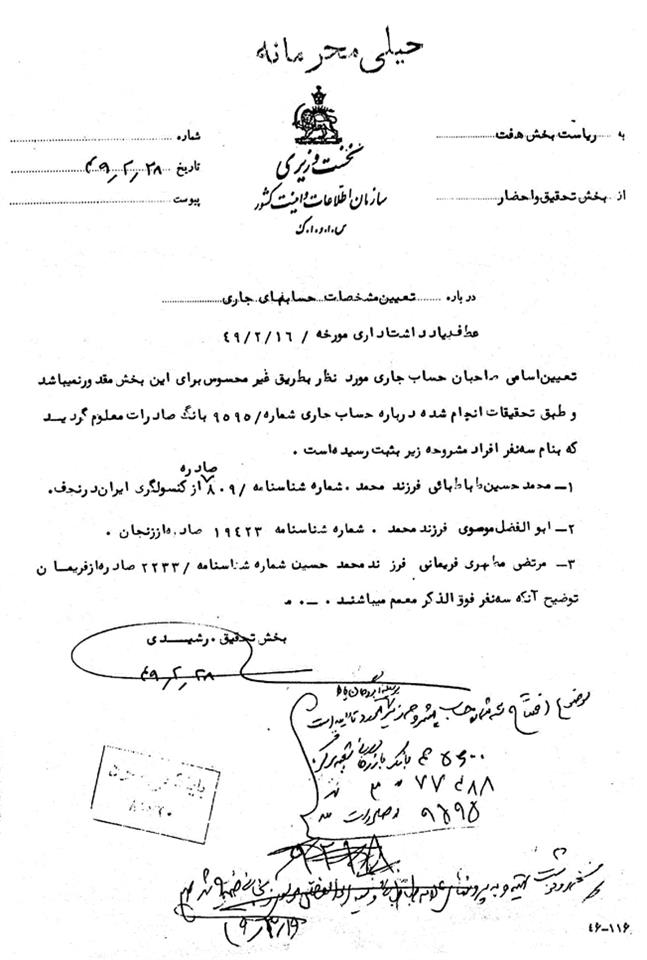 خیلی محرمانه
به ریاست بخش هفت
از بخش تحقیق و احضار
نخست وزیری
سازمان اطلاعات و امنیت کشور
س.ا.و.ا.ک
شماره
تاریخ ۴۹٫۲٫۲۸
پیوست
درباره تعیین مشخصات حسابهای جاری
عطف بیادداشت اداری مورخه / ۴۹/۲/۱۶
تعیین اسامی صاحبان حساب جاری مورد نظر بطریق غیر محسوس برای این بخش مقدور نمیباشد
و طبق تحقیقات انجام شده درباره حساب جاری شماره/ ۹۵۹۵ بانک صادرات معلوم گردید
که بنام سه نفر افراد مشروحه زیر بثبت رسیده است .
۱ـ محمد حسین طباطبائی فرزند محمد . شماره شناسنامه / ۸۰۹ صادره از کنسولگری ایران در نجف.
۲ـ ابوالفضل موسوی فرزند محمد . شماره شناسنامه ۱۹۴۲۳ صادره از زنجان .
۳ـ مرتضی مطهری فریمانی فرزند محمد حسین شماره شناسنامه / ۲۲۳۳ صادره از فریمان
توضیح آنکه سه نفر فوق الذکر معمم میباشند .ـ.م
بخش تحقیق . رشیدی
۴۹٫۲٫۲۸
موضوع افتتاح
بانک بازرگانی
۷۷۴۸۸
۹۵۹۵ صادرات
۴۶-۱۱۶